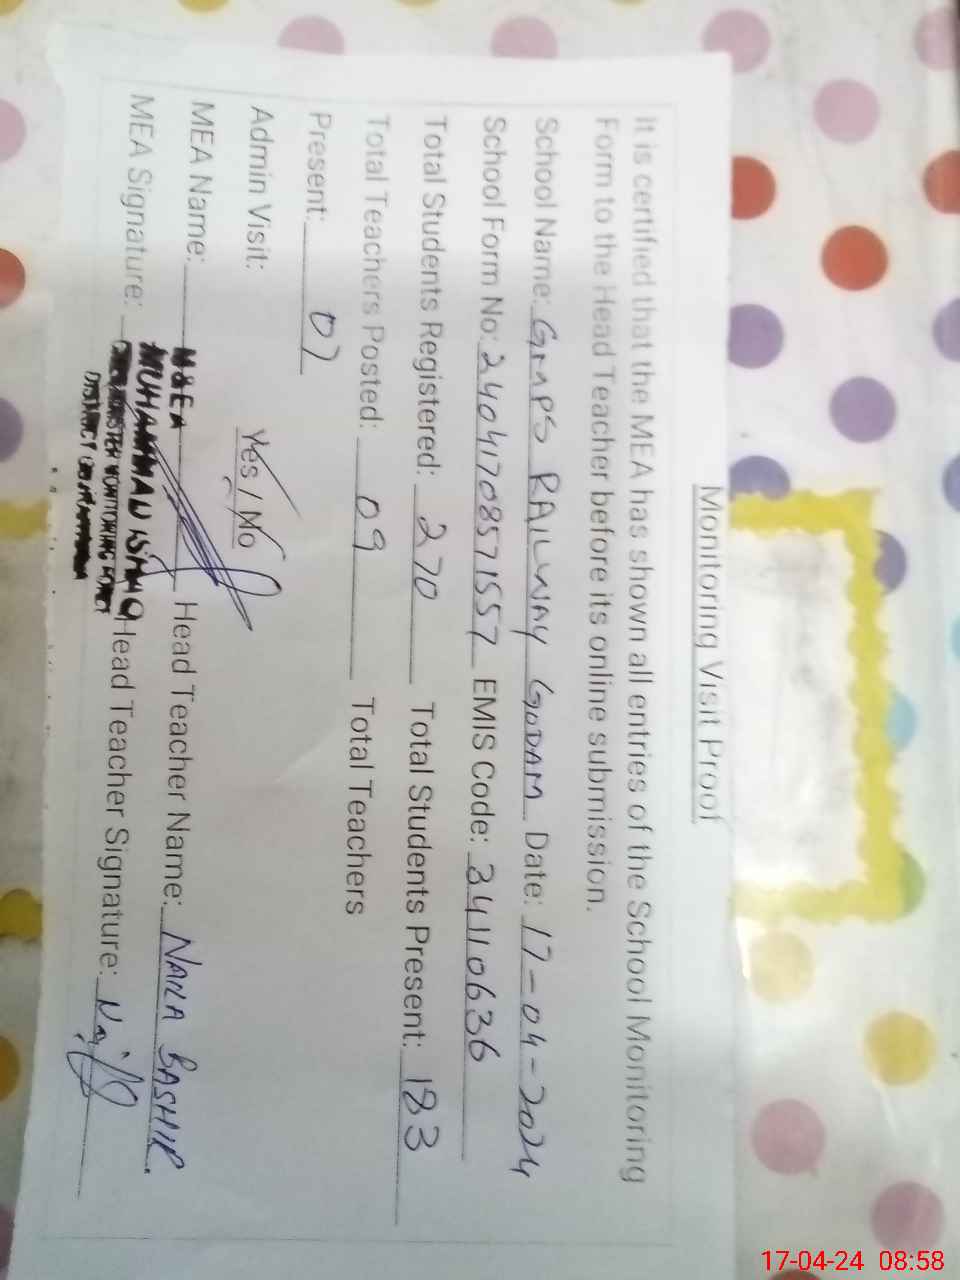 Monitoring Visit Proof
It is certified that the MEA has shown all entries of the School Monitoring
Form to the Head Teacher before its online submission.
School Name: GMPS RAILWAY GODAM Date: 17-04-2024
School Form No: 24041708571557 EMIS Code: 34110636
Total Students Registered: 270 Total Students Present: 183
Total Teachers Posted: 09 Total Teachers
Present: 07
Admin Visit: Yes / No
MEA Name: M&EA Head Teacher Name: NAILA BASHIR
MEA Signature: MUHAMMAD ISHAQ Head Teacher Signature:
MONITORING FORCE
DISTRICT
17-04-24 08:58